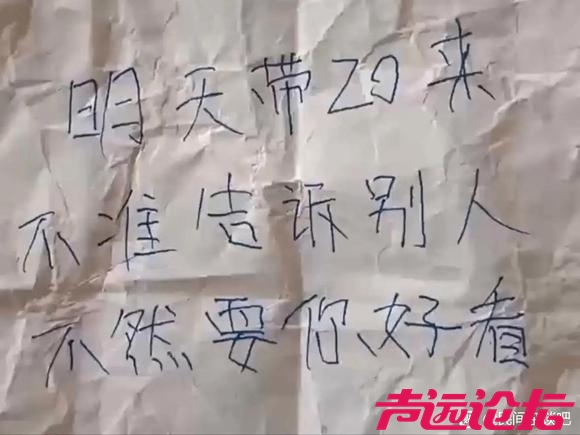 明天带20来
不准告诉别人
不然要你好看
尚远论坛